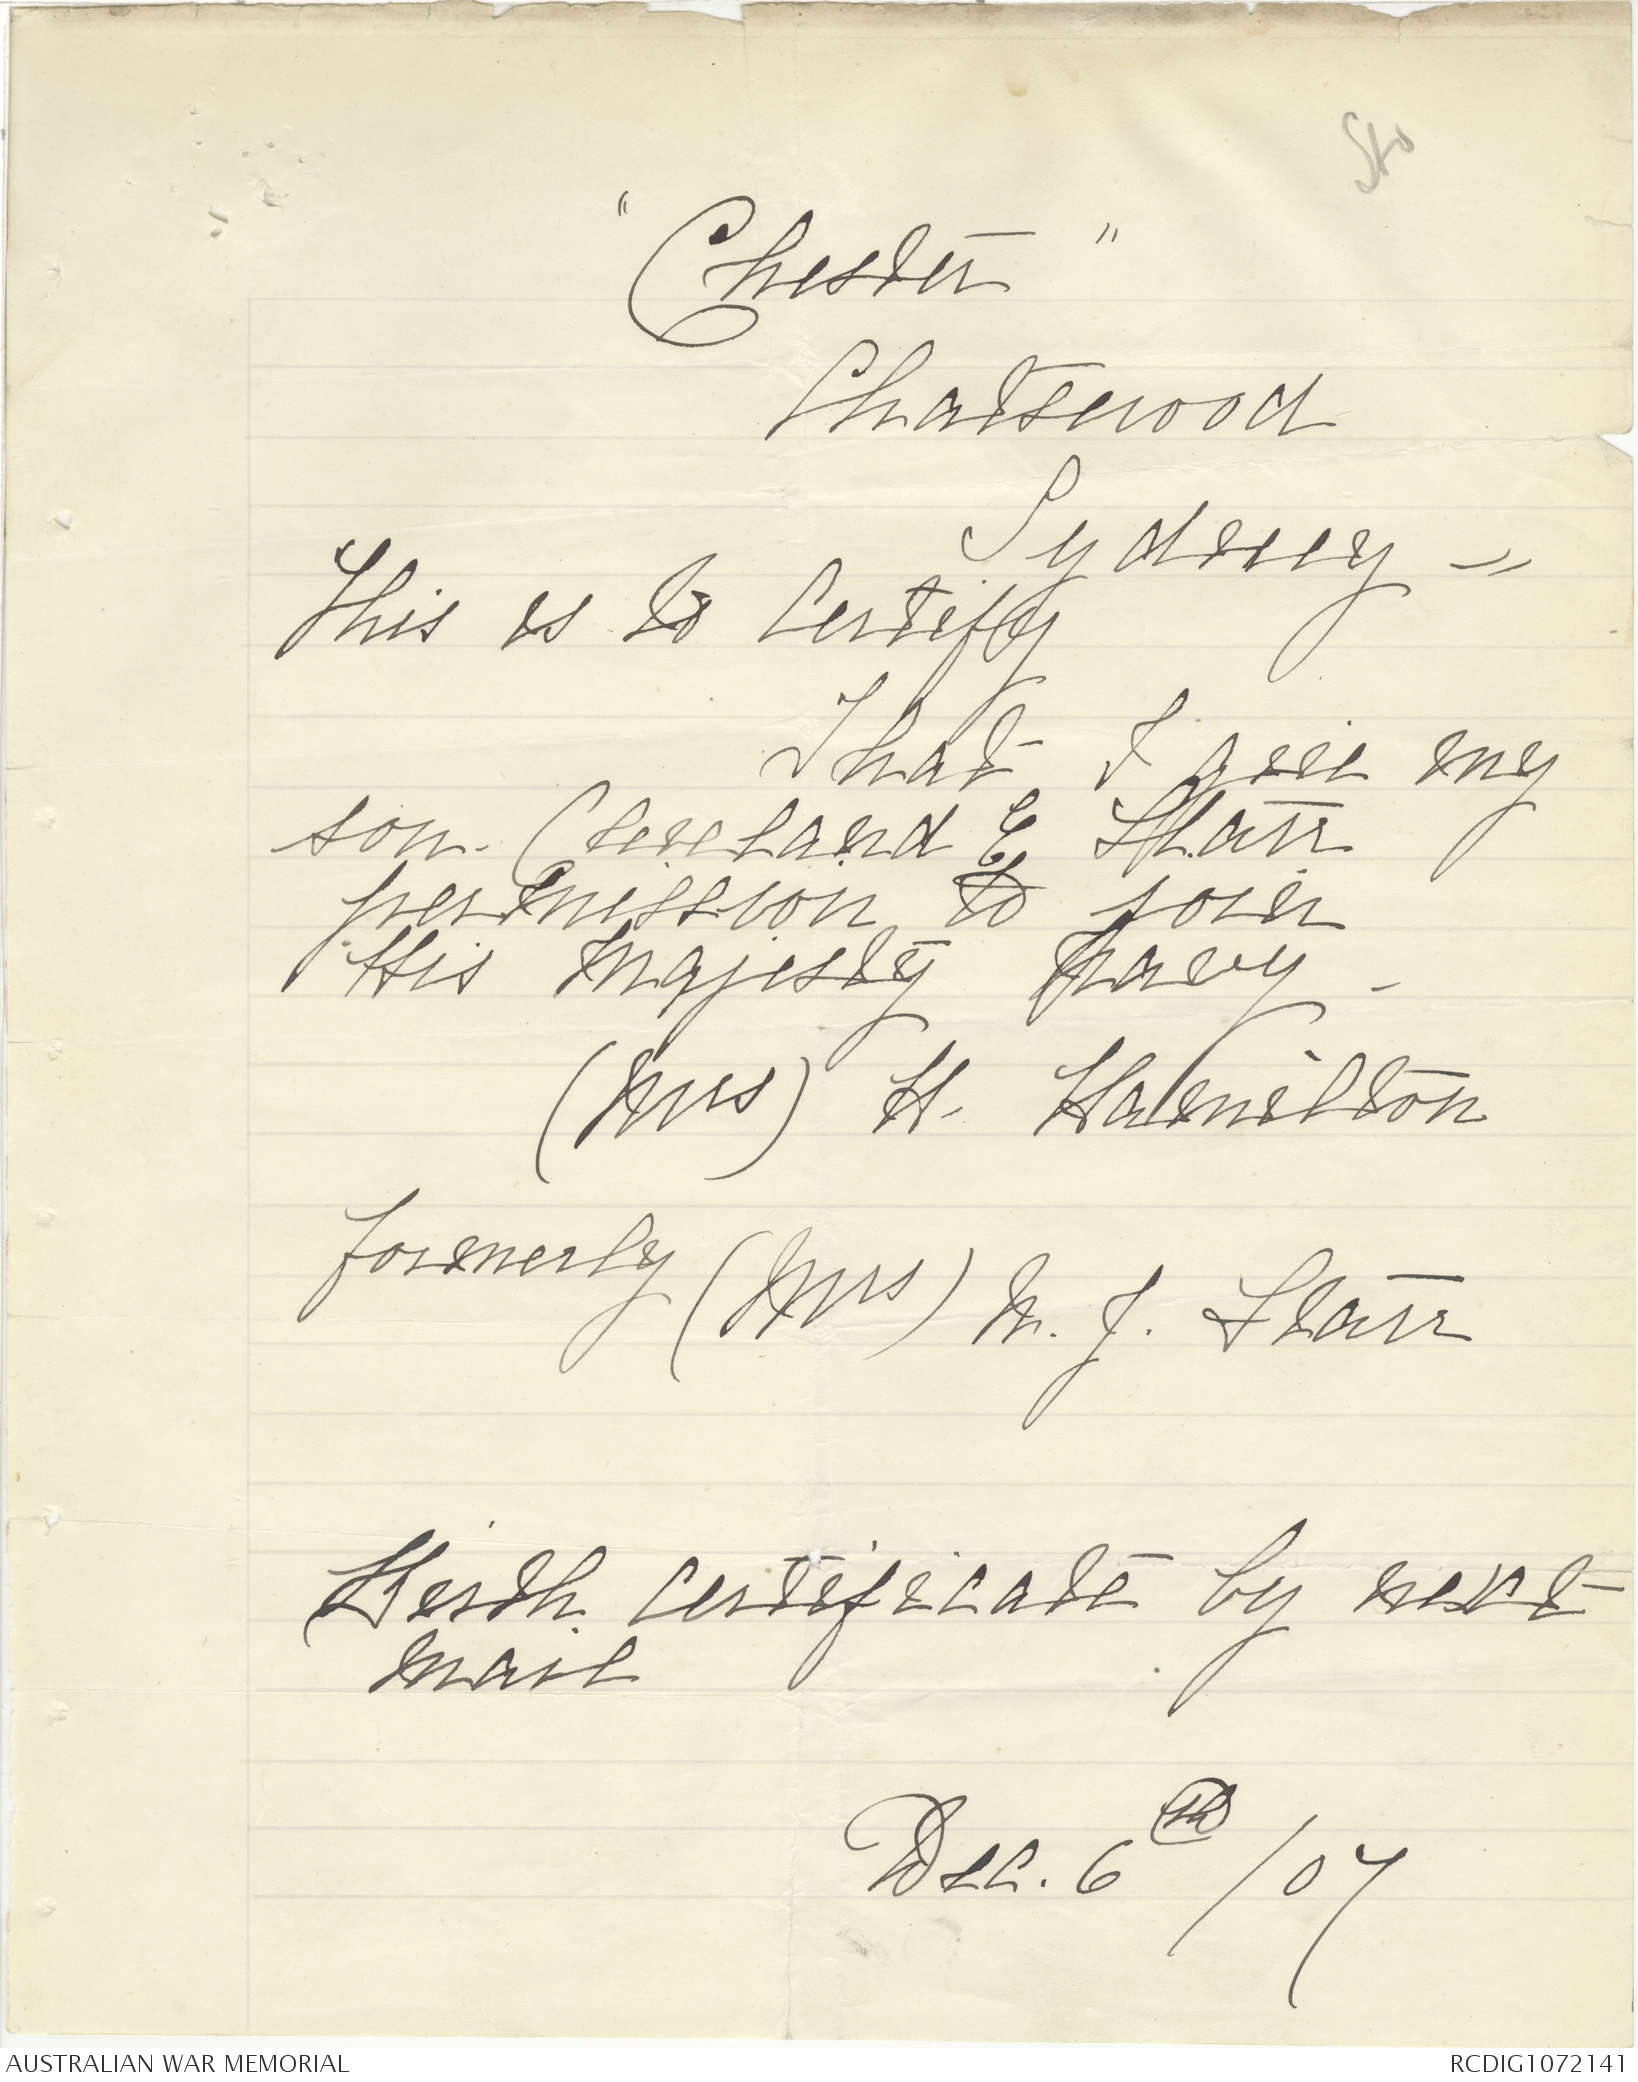 Sto
"Chester"
Chatswood
Sydney
This is to certify
That I give my
son. Cleveland E Starr
permission to join
His Majesty Navy -
(Mrs) H. Hamilton
formerly (Mrs) M. J. Starr
Birth Certificate by next
mail
Dec. 6th/07
AUSTRALIAN WAR MEMORIAL
RCDIG1072141